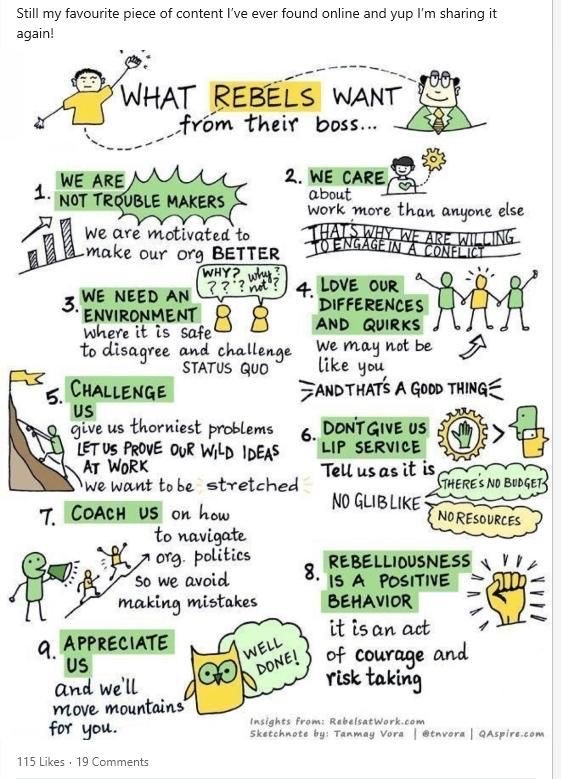 Still my favourite piece of content I've ever found online and yup I'm sharing it
again!
WHAT REBELS WANT
from their boss...
1. WE ARE
NOT TROUBLE MAKERS
We are motivated to
make our org BETTER
2. WE CARE
about
work more than anyone else
THAT'S WHY WE ARE WILLING
TO ENGAGE IN A CONFLICT
3. WE NEED AN
ENVIRONMENT
where it is safe
to disagree and challenge
STATUS QUO
WHY? why?
? ? ? not?
4. LOVE OUR
DIFFERENCES
AND QUIRKS
We may not be
like you
AND THAT'S A GOOD THING
5. CHALLENGE
US
give us thorniest problems
LET US PROVE OUR WILD IDEAS
AT WORK
we want to be stretched
6. DON'T GIVE US
LIP SERVICE
Tell us as it is
NO GLIB LIKE
THERE'S NO BUDGET
NO RESOURCES
7. COACH US on how
to navigate
org. politics
so we avoid
making mistakes
8. REBELLIOUSNESS
IS A POSITIVE
BEHAVIOR
it is an act
of courage and
risk taking
9. APPRECIATE
US
and we'll
move mountains
for you.
WELL
DONE!
Insights from: RebelsatWork.com
Sketchnote by: Tanmay Vora | @tnvora | QAspire.com
115 Likes · 19 Comments